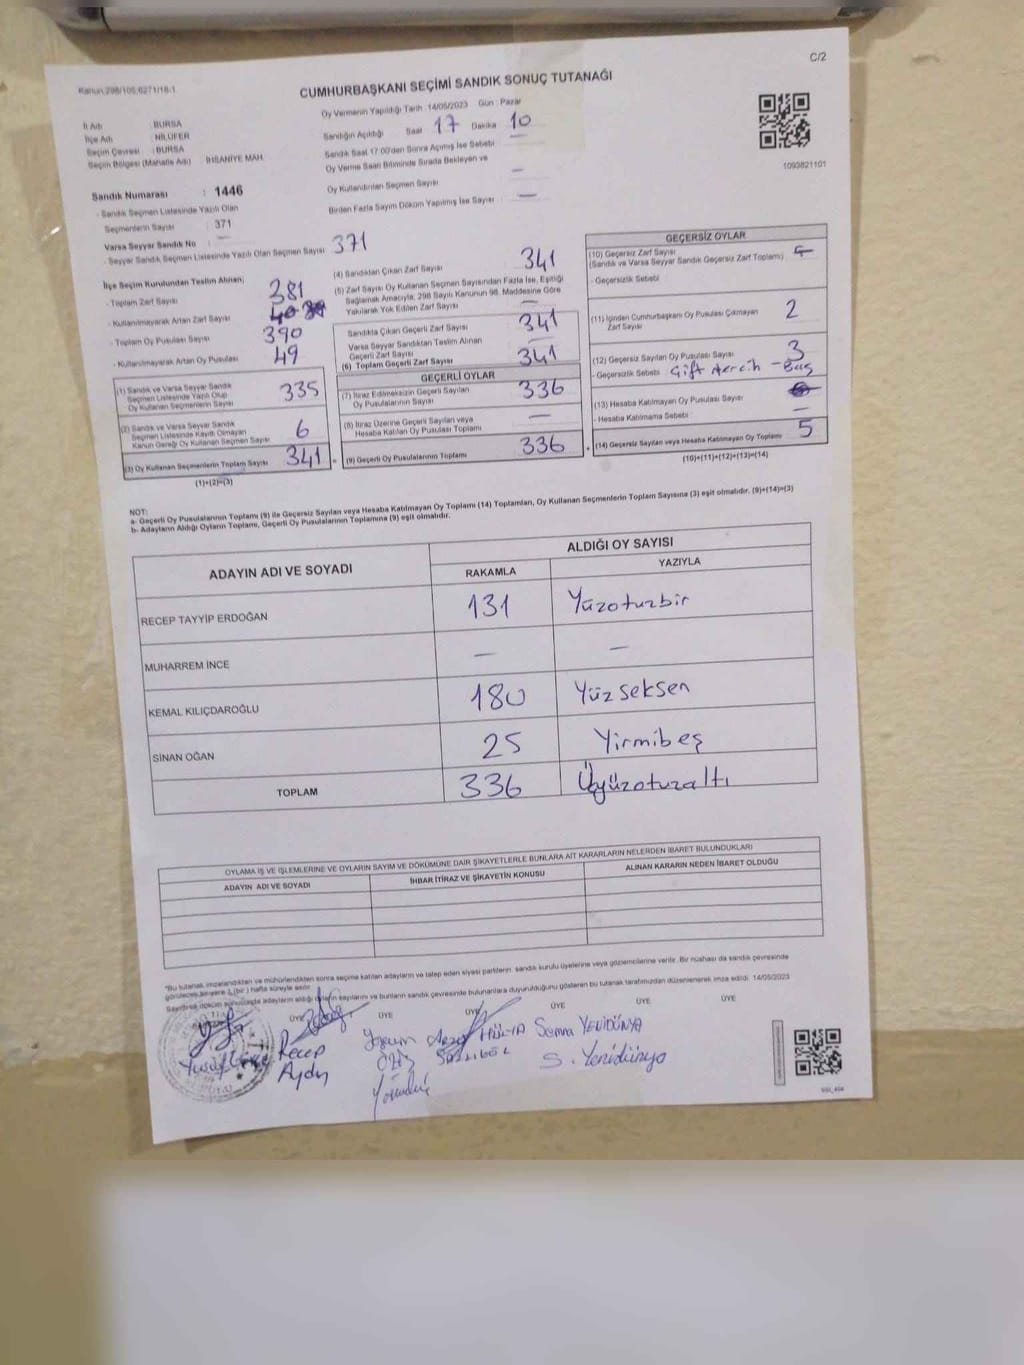 C/2
Kanun:298/105,6271/16-1
CUMHURBAŞKANI SEÇİMİ SANDIK SONUÇ TUTANAĞI
İl Adı : BURSA
İlçe Adı : NİLÜFER
Seçim Çevresi : BURSA
Seçim Bölgesi (Mahalle Adı) İHSANİYE MAH.
Sandık Numarası : 1446
- Sandık Seçmen Listesinde Yazılı Olan
Seçmenlerin Sayısı : 371
Varsa Seyyar Sandık No : —
- Seyyar Sandık Seçmen Listesinde Yazılı Olan Seçmen Sayısı 371
Oy Vermenin Yapıldığı Tarih :14/05/2023 Gün : Pazar
Sandığın Açıldığı Saat 17 Dakika 10
Sandık Saat 17:00'den Sonra Açılmış İse Sebebi —
Oy Verme Saati Bitiminde Sırada Bekleyen ve
Oy Kullandırılan Seçmen Sayısı —
Birden Fazla Sayım Döküm Yapılmış İse Sayısı —
1093821101
İlçe Seçim Kurulundan Teslim Alınan;
- Toplam Zarf Sayısı 381
- Kullanılmayarak Artan Zarf Sayısı 40
- Toplam Oy Pusulası Sayısı 390
- Kullanılmayarak Artan Oy Pusulası 49
(1) Sandık ve Varsa Seyyar Sandık
Seçmen Listesinde Yazılı Olup
Oy Kullanan Seçmenlerin Sayısı 335
(2) Sandık ve Varsa Seyyar Sandık
Seçmen Listesinde Kayıtlı Olmayan
Kanun Gereği Oy Kullanan Seçmen Sayısı 6
(3) Oy Kullanan Seçmenlerin Toplam Sayısı 341 =
(1)+(2)=(3)
(4) Sandıktan Çıkan Zarf Sayısı 341
(5) Zarf Sayısı Oy Kullanan Seçmen Sayısından Fazla İse, Eşitliği
Sağlamak Amacıyla, 298 Sayılı Kanunun 98. Maddesine Göre
Yakılarak Yok Edilen Zarf Sayısı —
Sandıkta Çıkan Geçerli Zarf Sayısı 341
Varsa Seyyar Sandıktan Teslim Alınan
Geçerli Zarf Sayısı —
(6) Toplam Geçerli Zarf Sayısı 341
GEÇERLİ OYLAR
(7) İtiraz Edilmeksizin Geçerli Sayılan
Oy Pusulalarının Sayısı 336
(8) İtiraz Üzerine Geçerli Sayılan veya
Hesaba Katılan Oy Pusulası Toplamı —
(9) Geçerli Oy Pusulalarının Toplamı 336 +
GEÇERSİZ OYLAR
(10) Geçersiz Zarf Sayısı
(Sandık ve Varsa Seyyar Sandık Geçersiz Zarf Toplamı)
- Geçersizlik Sebebi
(11) İçinden Cumhurbaşkanı Oy Pusulası Çıkmayan
Zarf Sayısı 2
(12) Geçersiz Sayılan Oy Pusulası Sayısı 3
- Geçersizlik Sebebi Çift tercih - Boş
(13) Hesaba Katılmayan Oy Pusulası Sayısı
- Hesaba Katılmama Sebebi —
(14) Geçersiz Sayılan veya Hesaba Katılmayan Oy Toplamı 5
(10)+(11)+(12)+(13)=(14)
NOT:
a- Geçerli Oy Pusulalarının Toplamı (9) ile Geçersiz Sayılan veya Hesaba Katılmayan Oy Toplamı (14) Toplamları, Oy Kullanan Seçmenlerin Toplam Sayısına (3) eşit olmalıdır. (9)+(14)=(3)
b- Adayların Aldığı Oyların Toplamı, Geçerli Oy Pusulalarının Toplamına (9) eşit olmalıdır.
ADAYIN ADI VE SOYADI
ALDIĞI OY SAYISI
RAKAMLA YAZIYLA
RECEP TAYYİP ERDOĞAN 131 Yüzotuzbir
MUHARREM İNCE — —
KEMAL KILIÇDAROĞLU 180 Yüzseksen
SİNAN OĞAN 25 Yirmibeş
TOPLAM 336 Üçyüzotuzaltı
OYLAMA İŞ VE İŞLEMLERİNE VE OYLARIN SAYIM VE DÖKÜMÜNE DAİR ŞİKAYETLERLE BUNLARA AİT KARARLARIN NELERDEN İBARET BULUNDUKLARI
ADAYIN ADI VE SOYADI İHBAR İTİRAZ VE ŞİKAYETİN KONUSU ALINAN KARARIN NEDEN İBARET OLDUĞU
"Bu tutanak, imzalandıktan ve mühürlendikten sonra seçime katılan adayların ve talep eden siyasi partilerin sandık kurulu üyelerine veya gözlemcilerine verilir. Bir nüshası da sandık çevresinde
görülecek bir yere 1 (bir) hafta süreyle asılır.
Sayım ve döküm sonucunda adayların aldığı oyların sayılarını ve bunların sandık çevresinde duyurulduğunu gösteren bu tutanak tarafımızdan düzenlenerek imza edildi. 14/05/2023
ÜYE ÜYE ÜYE ÜYE ÜYE ÜYE
Recep
Aydın
Semra YENİDÜNYA
S. Yenidünya